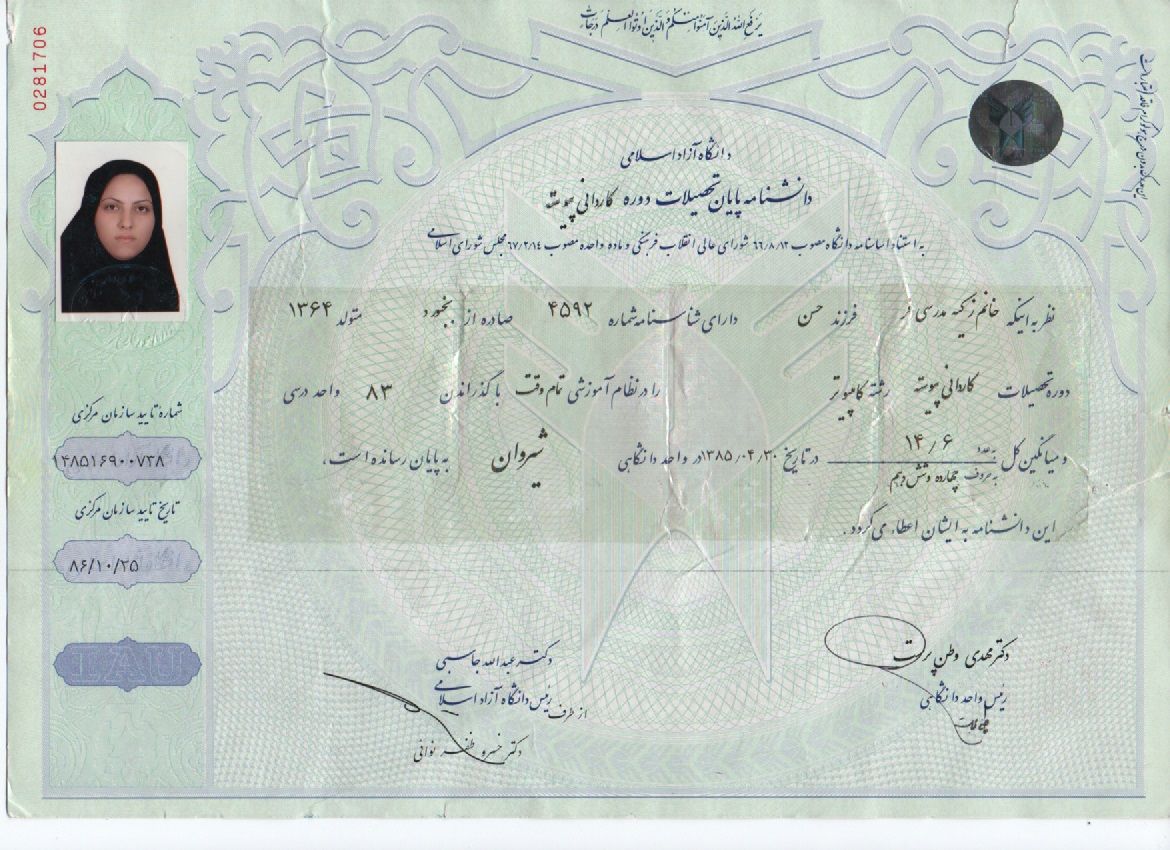 یرفع الله الذین آمنوا منکم و الذین اوتوا العلم درجات
0281706
دانشگاه آزاد اسلامی
دانشنامه پایان تحصیلات دوره کاردانی پیوسته
به استناد اساسنامه دانشگاه مصوب ۶۶/۸/۱۲ شورای عالی انقلاب فرهنگی و ماده واحده مصوب ۶۷/۲/۱۴ مجلس شورای اسلامی
نظر به اینکه خانم زکیه مدرسی فر فرزند حسن دارای شناسنامه شماره ۴۵۹۲ صادره از بجنورد متولد ۱۳۶۴
دوره تحصیلات کاردانی پیوسته رشته کامپیوتر را در نظام آموزشی تمام وقت با گذراندن ۸۳ واحد درسی
و میانگین کل به عدد ۱۴/۶ به حروف چهارده و شش دهم در تاریخ ۱۳۸۵/۰۴/۳۰ در واحد دانشگاهی شیروان به پایان رسانده است.
این دانشنامه به ایشان اعطاء می گردد.
شماره تایید سازمان مرکزی
۴۸۵۱۶۹۰۰۷۳۸
تاریخ تایید سازمان مرکزی
۸۶/۱۰/۲۵
IAU
دکتر مهدی وطن پرست
رئیس واحد دانشگاهی
دکتر عبدالله جاسبی
رئیس دانشگاه آزاد اسلامی
از طرف
دکتر خسرو ظفر نوائی